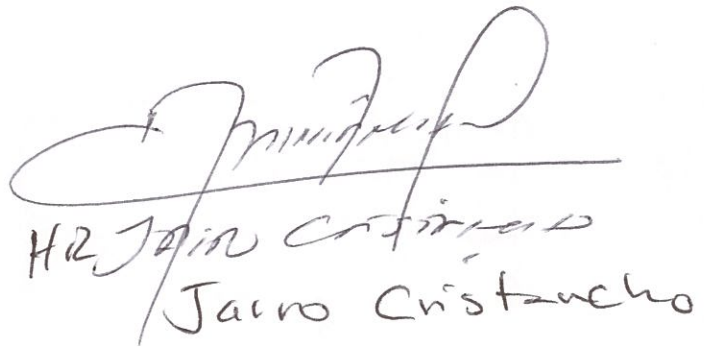 HR Jairo Cristancho
Jairo Cristancho